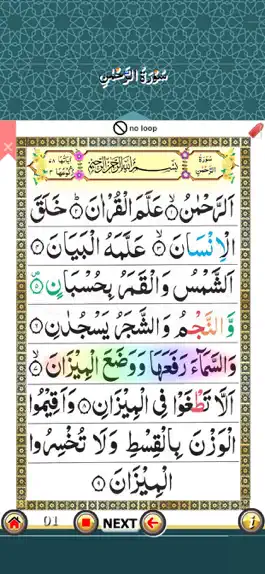 سُوْرَةُ الرَّحْمٰنِ
no loop
سُوْرَةُ الرَّحْمٰنِ
بِسْمِ اللهِ الرَّحْمٰنِ الرَّحِيْمِ
اٰيَاتُهَا ٧٨
رُكُوْعَاتُهَا ٣
اَلرَّحْمٰنُ ۙ﴿١﴾ عَلَّمَ الْقُرْاٰنَ ؕ﴿٢﴾ خَلَقَ
الْاِنْسَانَ ۙ﴿٣﴾ عَلَّمَهُ الْبَيَانَ ﴿٤﴾
اَلشَّمْسُ وَالْقَمَرُ بِحُسْبَانٍ ﴿٥﴾
وَّالنَّجْمُ وَالشَّجَرُ يَسْجُدٰنِ ﴿٦﴾
وَالسَّمَآءَ رَفَعَهَا وَوَضَعَ الْمِيْزَانَ ۙ﴿٧﴾
اَلَّا تَطْغَوْا فِى الْمِيْزَانِ ﴿٨﴾ وَاَقِيْمُوا
الْوَزْنَ بِالْقِسْطِ وَلَا تُخْسِرُوا
الْمِيْزَانَ ﴿٩﴾
01 NEXT i